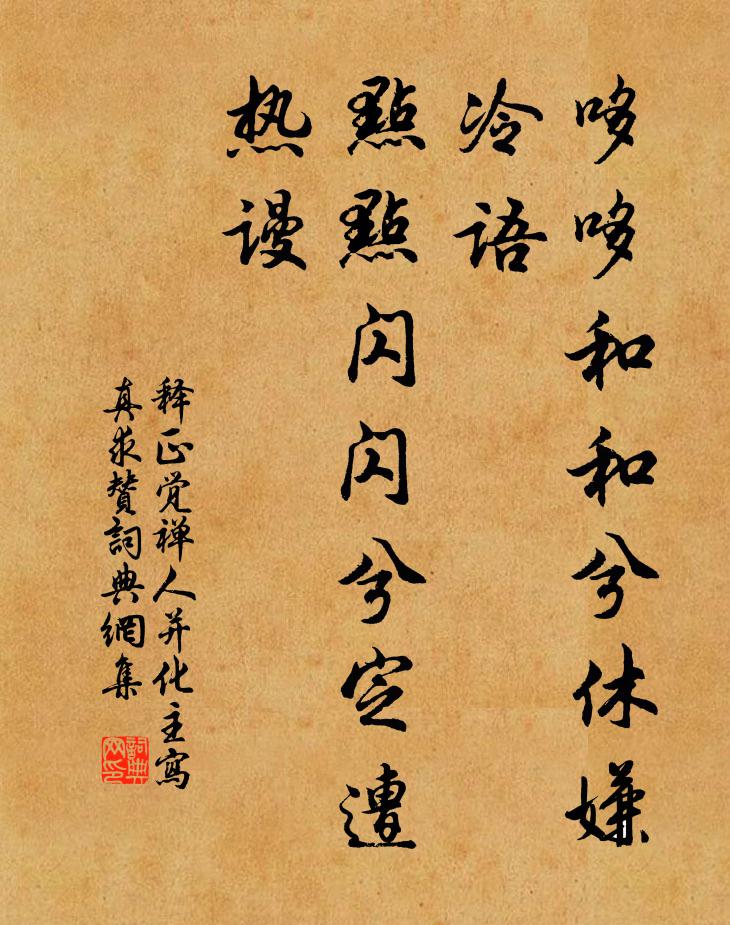 哆哆和和兮休嫌
冷语
點點闪闪兮定遭
热谩
释正觉禅人并化主寫
真求赞詞典網集
詞典網印